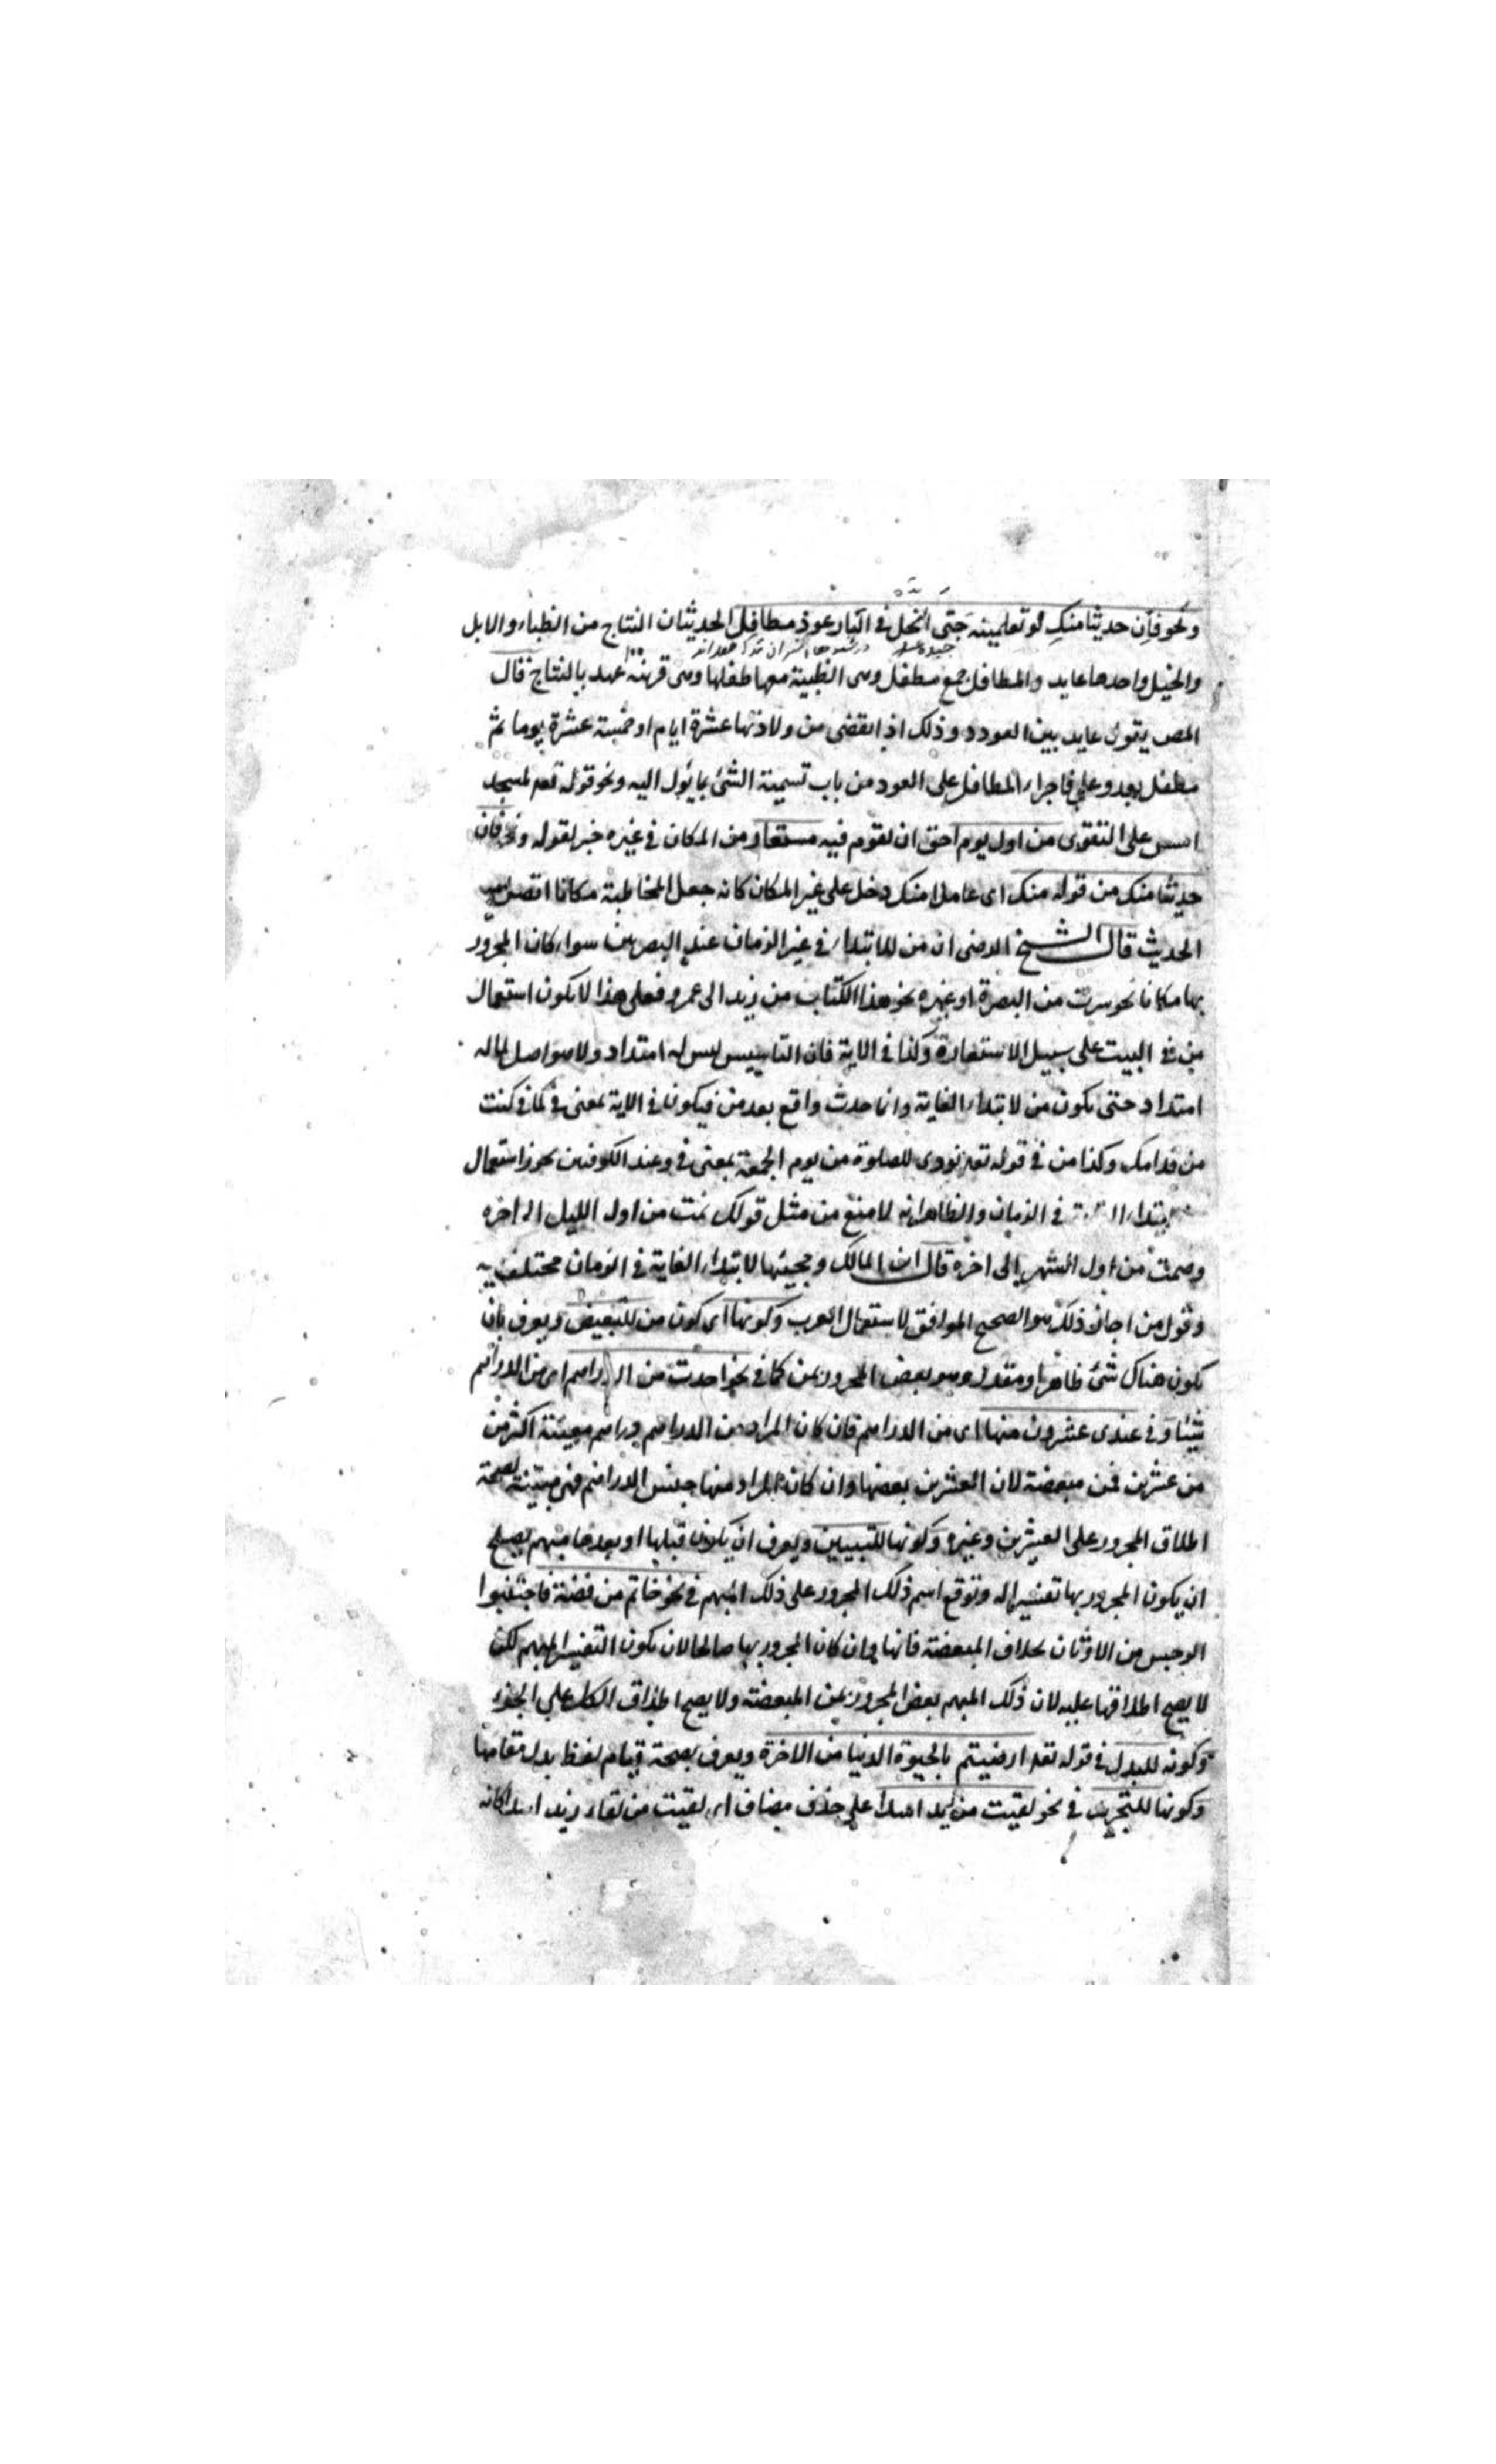 ونحو فإن حديثا منكِ لو تعلمينه جَنَى النحل في البار عوذٍ مطافل الحديثات النتاج من الظباء والابل
والخيل واحدها عايد والمطافل جمع مطفل وهى الظبية معها طفلها وهى قريبة عهد بالنتاج فقال
المص يقول عايد بين العودد وذلك اذا انقضى من ولادتها عشرة ايام او خمسة عشرة يوما ثم
مطفل بعد وعلى فاجراء المطافل على العود من باب تسمية الشئ بما يؤل اليه ونحو قوله تعم لمسجد
اسس على التقوى من اول يوم احق ان تقوم فيه مستعار من المكان في غيره خبر لقوله ونحو فان
حديثا منك من قوله منك اى عاملا منك دخل على غير المكان كانه جعل المخاطبة مكانا اتصل به
الحديث قال الشيخ الرضى ان من للابتداء في غير الزمان عند البصريين سواء كان المجرور
بها مكانا نحو سرت من البصرة او غيره نحو هذا الكتاب من زيد الى عمرو فعلى هذا لا يكون استعمال
من في البيت على سبيل الاستعارة وكذا في الاية فان التاسيس ليس له امتداد ولا هو اصل لما له
امتداد حتى يكون من لابتداء الغاية وانما حدث واقع بعد من فيكون في الاية بمعنى في كما في كنت
من قدامك وكذا من في قوله تعم نودى للصلوة من يوم الجمعة بمعنى في وعند الكوفيين يجوز استعمال
ابتداء في الزمان والظاهر انه لا منع من مثل قولك نمت من اول الليل الى اخره
وصمت من اول الشهر الى اخره قال ابن المالك ومجيئها لابتداء الغاية في الزمان مختلف فيه
وقول من اجاز ذلك هو الصحيح الموافق لاستعمال العرب وكونها اى كون من للتبعيض ويعرف بان
يكون هناك شئ ظاهر او مقدر وهو بعض المجرور بمن كما في نحو اخذت من الدراهم اى من الدراهم
شيئا وفي عندى عشرون منها اى من الدراهم فان كان المراد من الدراهم دراهم معينة اكثر من
من عشرين فمن مبعضة لان العشرين بعضها وان كان المراد منها جنس الدراهم فهى مبينة لصحة
اطلاق المجرور على العشرين وغيره وكونها للتبيين ويعرف ان يكون قبلها او بعدها مبهم يصلح
ان يكون المجرور بها تفسيرا له وتوقع اسم ذلك المجرور على ذلك المبهم في نحو خاتم من فضة فاجتنبوا
الرجس من الاوثان بخلاف المبعضة فانها وان كان المجرور بها صالحا لان يكون التفسير المبهم لكن
لا يصح اطلاقها عليه لان ذلك المبهم بعض المجرور بمن المبعضة ولا يصح اطلاق الكل على الجزء
وكونه للبدل في قوله تعم ارضيتم بالحيوة الدنيا من الاخرة ويعرف بصحة قيام لفظ بدل مقامها
وكونها للتجريد في نحو لقيت من زيد اسدا على حذف مضاف اى لقيت من لقاء زيد اسدا كانه